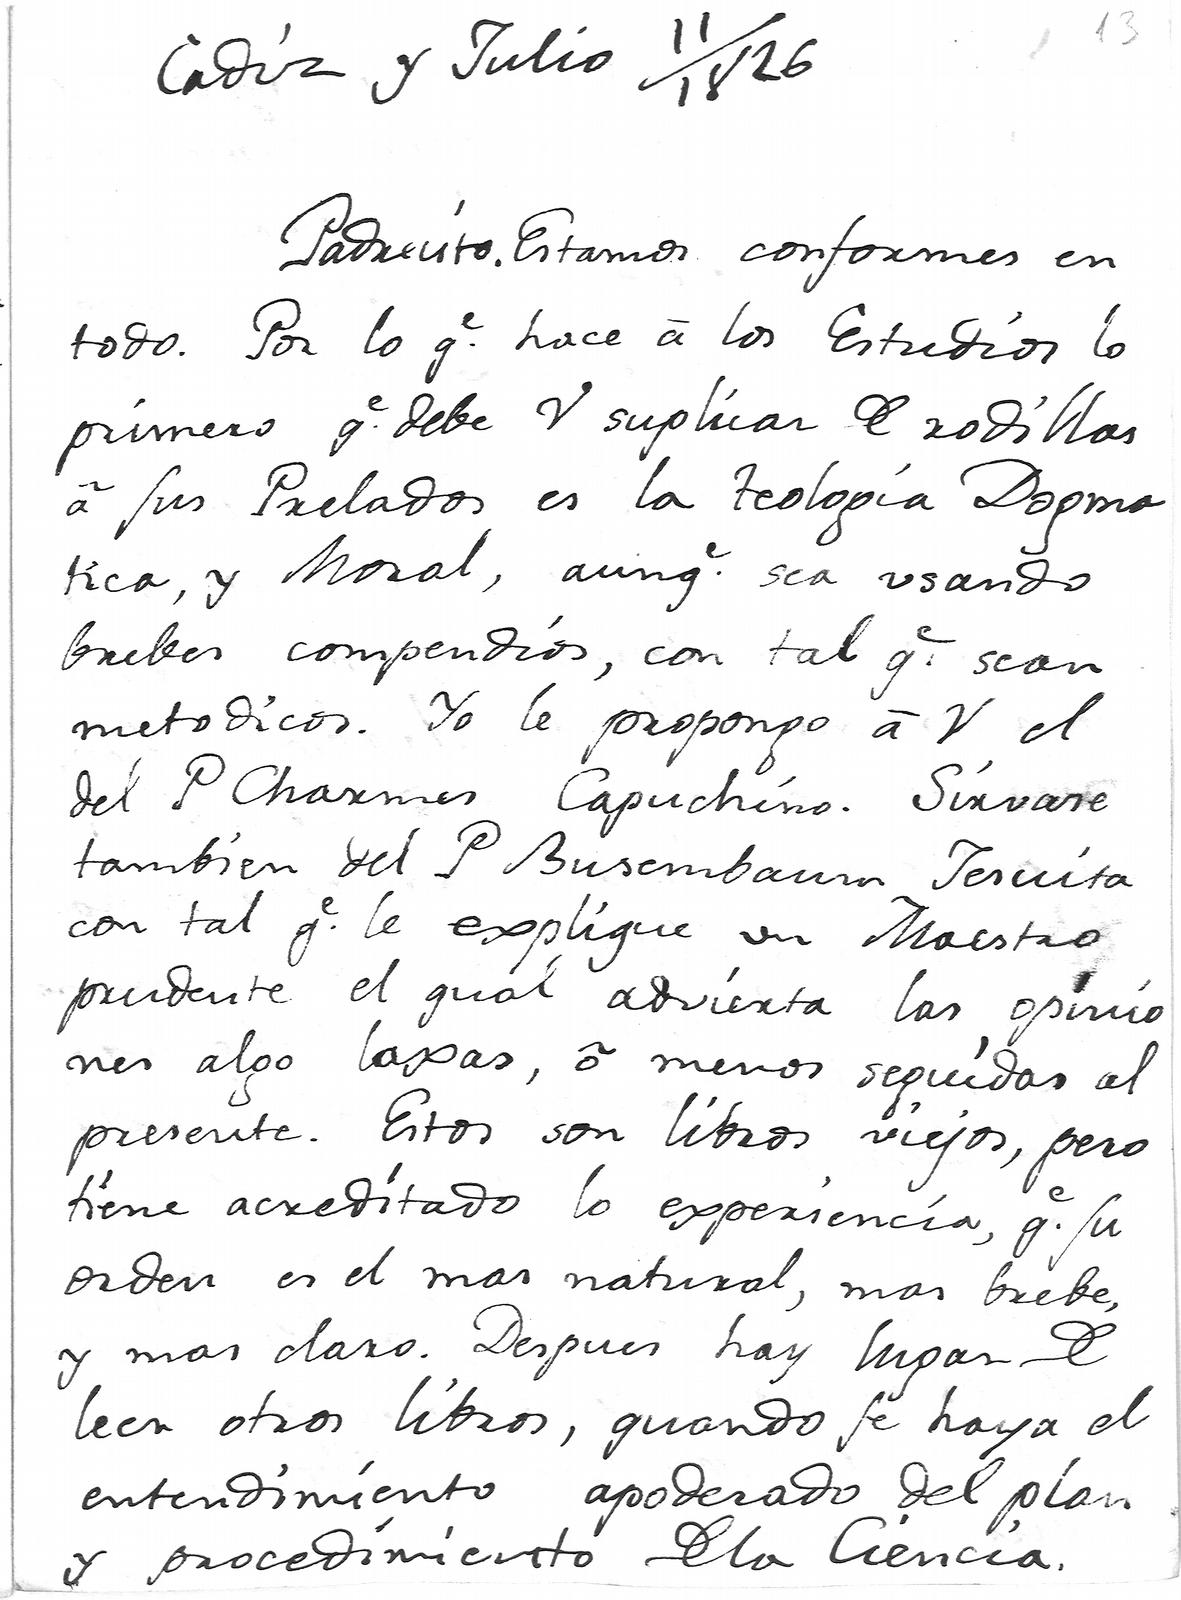 13
Cadiz y Julio 11/18/26
Padrecito. Estamos conformes en
todo. Por lo qe. hace ā los Estudios lo
primero qe. debe V suplicar De rodillas
ā sus Prelados es la Teología Dogma
tica, y Moral, aunqe. sea usando
brebes compendios, con tal qe. sean
metodicos. Yo le propongo ā V el
del P Charmes Capuchino. Sirvase
tambien del P Busembaum Jesuita
con tal qe. le explique un Maestro
prudente el qual advierta las opinio
nes algo laxas, ō menos seguidas al
presente. Estos son libros viejos, pero
tiene acreditado la experiencia, qe. su
orden es el mas natural, mas brebe,
y mas claro. Despues hay lugar De
leer otros libros, quando se haya el
entendimiento apoderado del plan
y procedimiento Dela Ciencia.